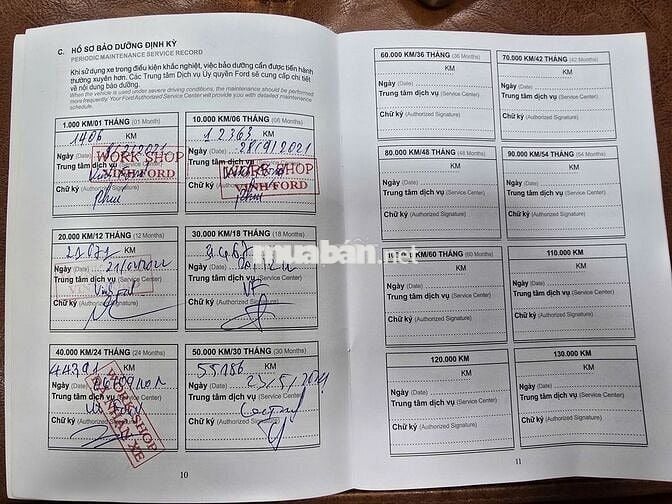 C. HỒ SƠ BẢO DƯỠNG ĐỊNH KỲ
PERIODIC MAINTENANCE SERVICE RECORD
Khi sử dụng xe trong điều kiện khắc nghiệt, việc bảo dưỡng cần được tiến hành
thường xuyên hơn. Các Trung tâm Dịch vụ Ủy quyền Ford sẽ cung cấp chi tiết
về nội dung bảo dưỡng.
When the vehicle is used under severe driving conditions, the maintenance should be performed
more frequently. Your Ford Authorized Service Center will provide you with detailed maintenance
schedule.
1.000 KM/01 THÁNG (01 Month)
1406 KM
Ngày (Date)
Trung tâm dịch vụ
WORK SHOP
VINH FORD
Chữ ký (Authorized Signature)
10.000 KM/06 THÁNG (06 Months)
12363 KM
Ngày (Date) 28/9/2021
Trung tâm dịch vụ
WORK SHOP
VINH FORD
Chữ ký (Authorized Signature)
20.000 KM/12 THÁNG (12 Months)
KM
Ngày (Date)
Trung tâm dịch vụ (Service Center)
Chữ ký (Authorized Signature)
30.000 KM/18 THÁNG (18 Months)
KM
Ngày (Date)
Trung tâm dịch vụ (Service Center)
VF
Chữ ký (Authorized Signature)
40.000 KM/24 THÁNG (24 Months)
44791 KM
Ngày (Date)
Trung tâm dịch vụ
Chữ ký (Authorized Signature)
50.000 KM/30 THÁNG (30 Months)
55186 KM
Ngày (Date)
Trung tâm dịch vụ (Service Center)
Chữ ký (Authorized Signature)
10
muaban.net
60.000 KM/36 THÁNG (36 Months)
KM
Ngày (Date)
Trung tâm dịch vụ (Service Center)
Chữ ký (Authorized Signature)
70.000 KM/42 THÁNG (42 Months)
KM
Ngày (Date)
Trung tâm dịch vụ (Service Center)
Chữ ký (Authorized Signature)
80.000 KM/48 THÁNG (48 Months)
KM
Ngày (Date)
Trung tâm dịch vụ (Service Center)
Chữ ký (Authorized Signature)
90.000 KM/54 THÁNG (54 Months)
KM
Ngày (Date)
Trung tâm dịch vụ (Service Center)
Chữ ký (Authorized Signature)
KM/60 THÁNG (60 Months)
KM
Ngày (Date)
Trung tâm dịch vụ (Service Center)
Chữ ký (Authorized Signature)
110.000 KM
KM
Ngày (Date)
Trung tâm dịch vụ (Service Center)
Chữ ký (Authorized Signature)
120.000 KM
KM
Ngày (Date)
Trung tâm dịch vụ (Service Center)
Chữ ký (Authorized Signature)
130.000 KM
KM
Ngày (Date)
Trung tâm dịch vụ (Service Center)
Chữ ký (Authorized Signature)
11